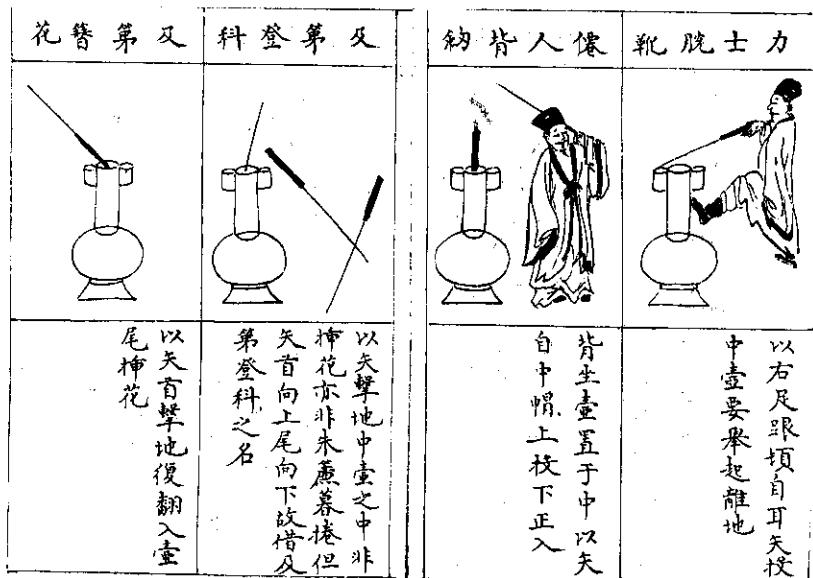 力士脱靴
以右足跟頂自耳矢投
中壺要舉起離地
僊人背劒
背坐壺置于中以矢
自中帽上投下正入
及第登科
以矢擊地中壺之中非
揷花亦非朱簾暮捲但
矢首向上尾向下故借及
第登科之名
及第簪花
以矢首擊地復翻入壺
尾揷花